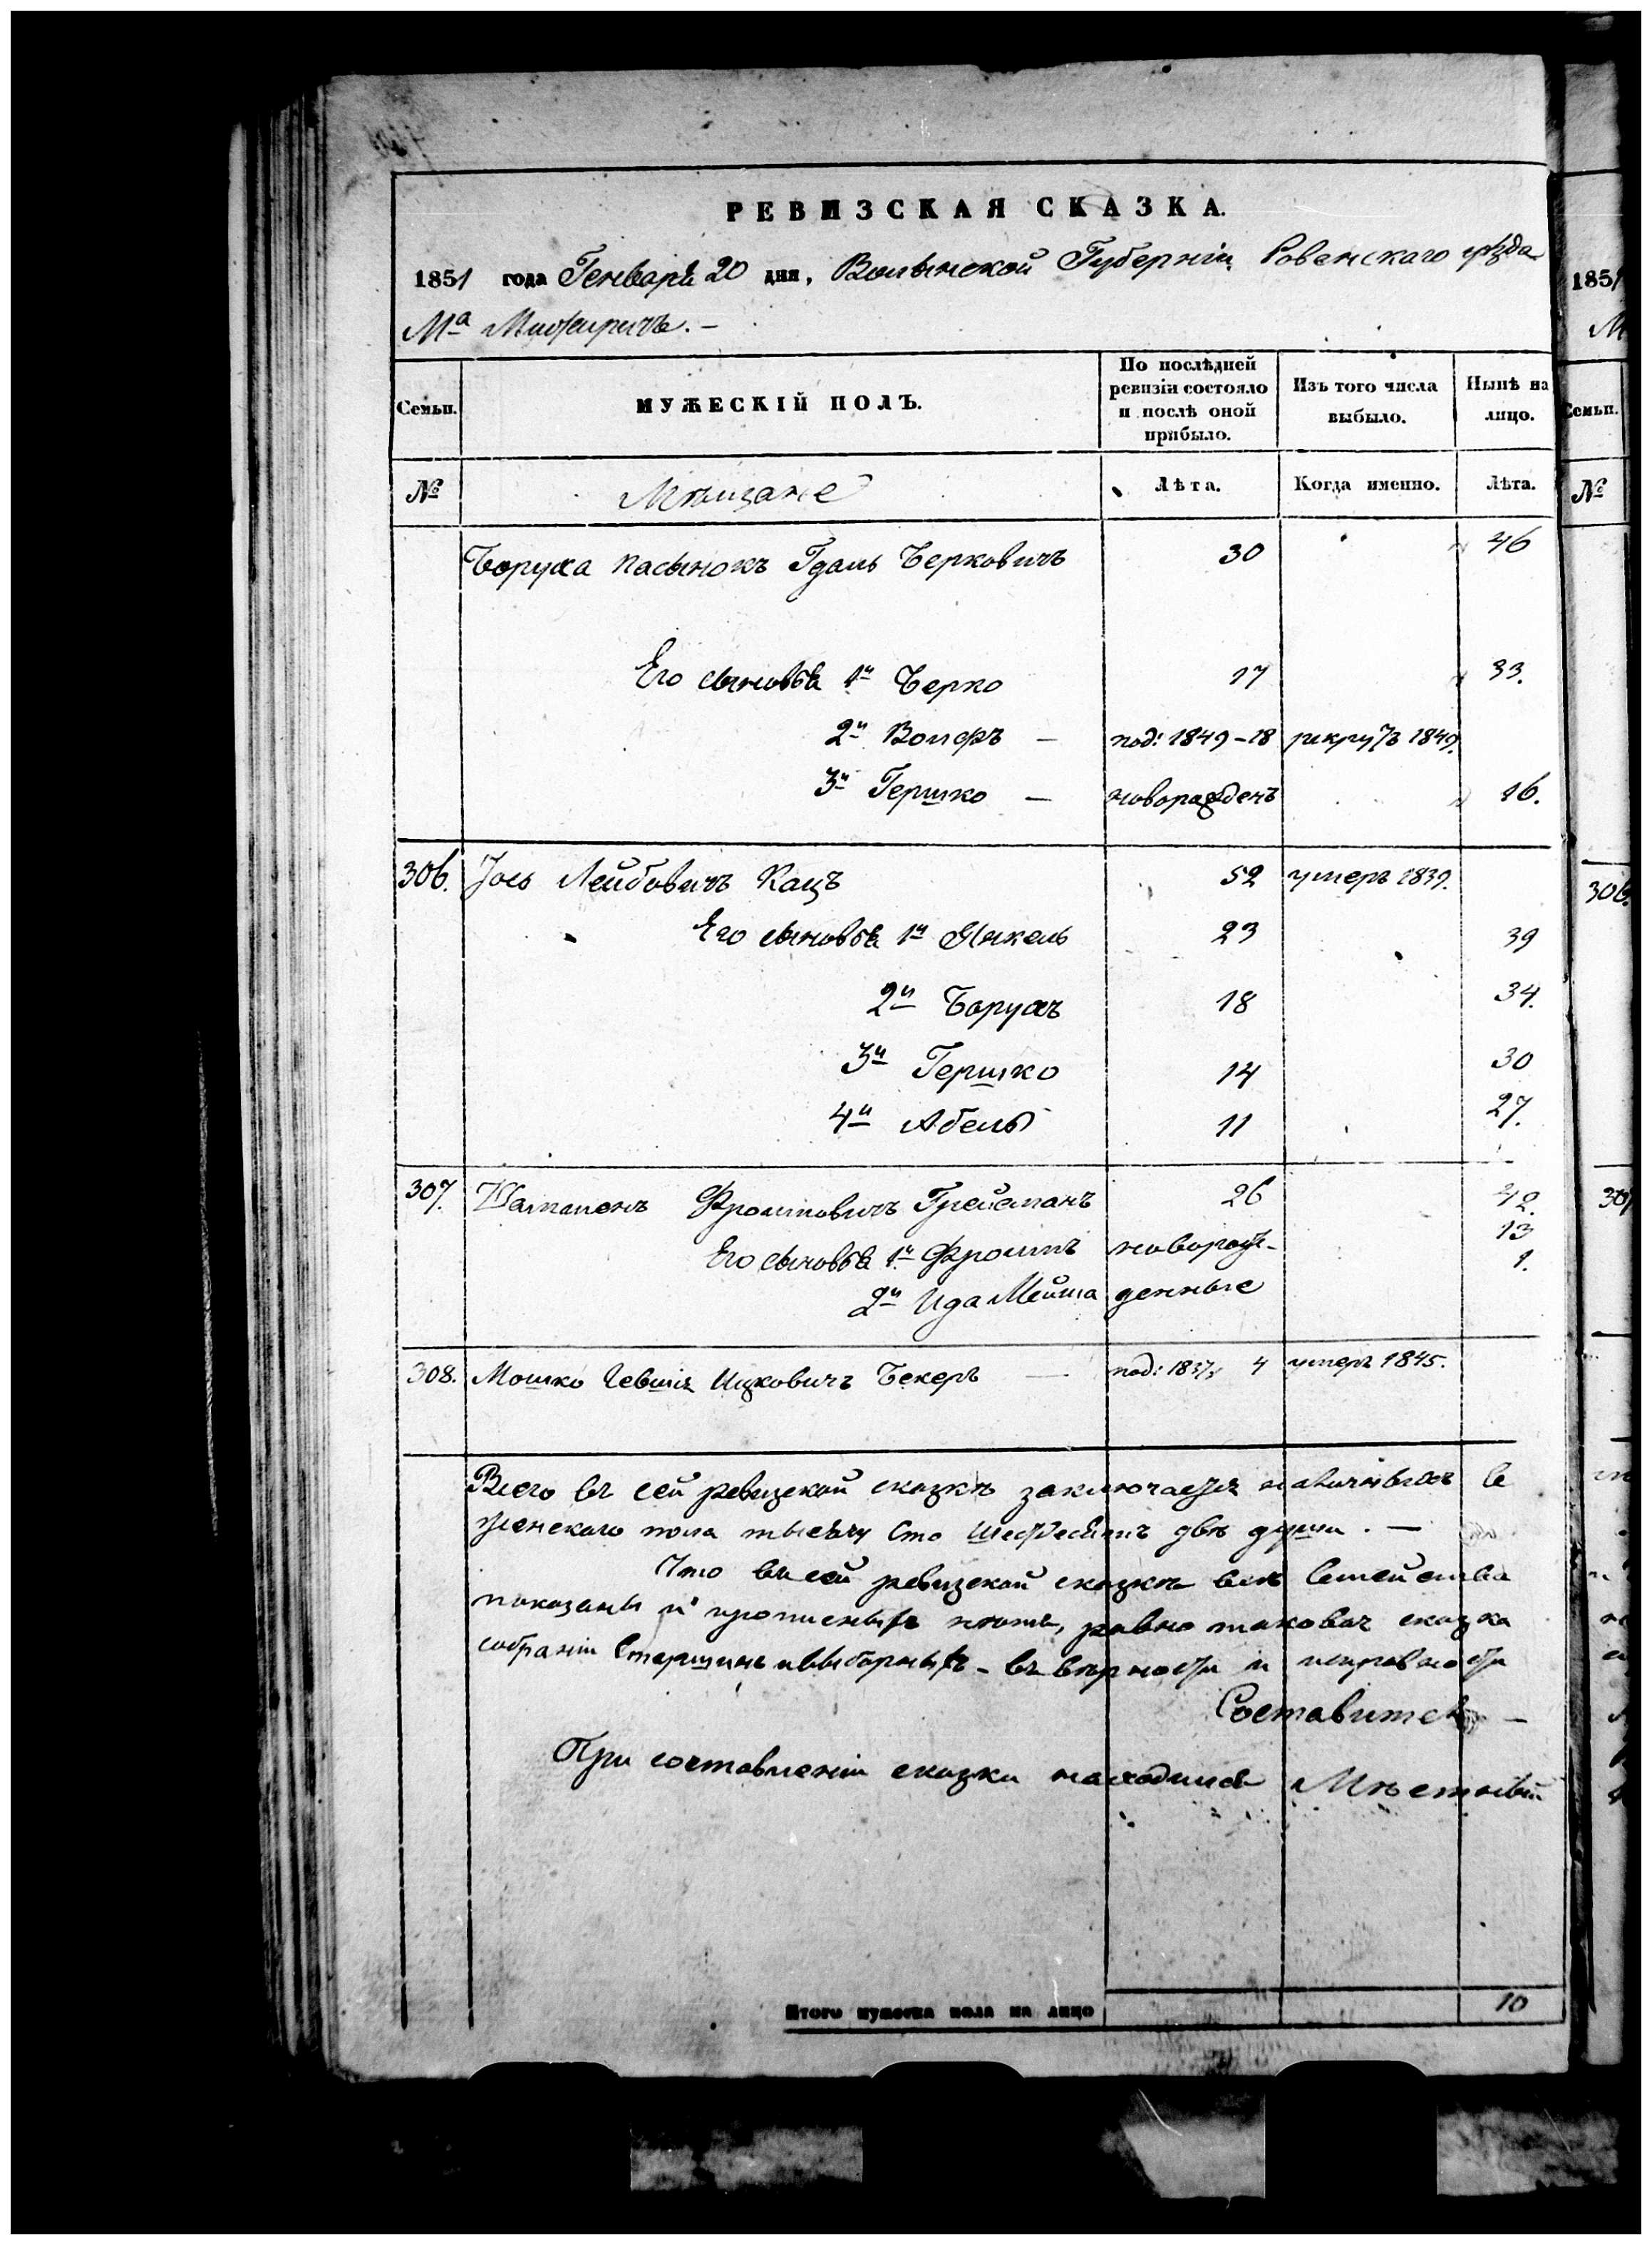 РЕВИЗСКАЯ СКАЗКА.
1851 года Генваря 20 дня, Волынской Губерніи Ровенскаго уѣзда
Мª Межиричъ. –
Семьи. МУЖЕСКІЙ ПОЛЪ. По послѣдней ревизіи состояло и послѣ оной прибыло. Изъ того числа выбыло. Нынѣ на лицо.
№ Мѣщане Лѣта. Когда именно. Лѣта.
Боруха пасынокъ Гдаль Берковичъ 30 46
Его сыновья 1й Берко 17 33.
2й Вольфъ – под: 1849 – 18 рекрутъ 1849.
3й Гершко – новорожденъ 16.
306. Іось Лейбовичъ Кацъ 52 умеръ 1839.
Его сыновья 1й Янкель 23 39
2й Борухъ 18 34.
3й Гершко 14 30
4й Абель 11 27.
307. Шампсонъ Фроимовичъ Грейсманъ 26 42.
Его сыновья 1й Фроимъ новорож- 13
2й Ида Мейша денные 1.
308. Мошко Иевшія Ицковичъ Бекеръ – под: 1837, 4 умеръ 1845.
Всего въ сей ревизской сказкѣ заключается наличныхъ
женскаго пола тысячу сто шестдесятъ двѣ души. –
Что въ сей ревизской сказкѣ всѣ семейства
показаны и прописныхъ нѣтъ, равно таковая сказка
собраніи старшинъ и выборныхъ – въ вѣрности и исправности
Составитель –
При составленіи сказки находился Мѣстный
Итого мужеска пола на лицо 10
1851
М
Семьи.
№
306.
307